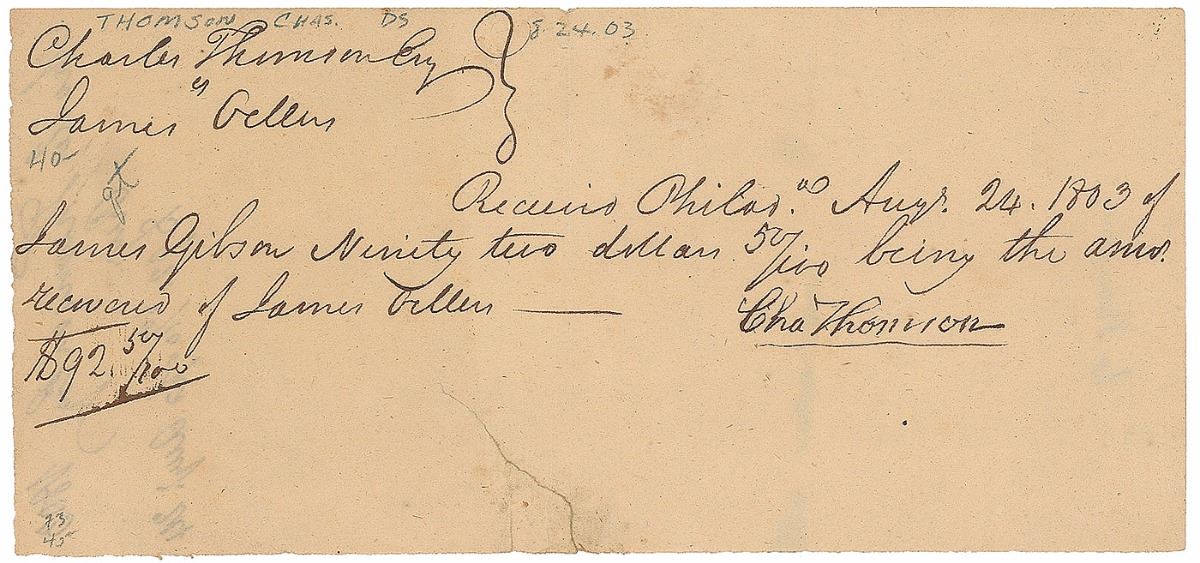 THOMSON CHAS. DS 8.24.03
Charles Thomson Esq
vs
James Oellers
40-
Received Philad.ª Augt. 24. 1803 of
James Gibson Ninety two dollars 50/100 being the amo.
recovered of James Oellers
Cha Thomson
$92 50/100